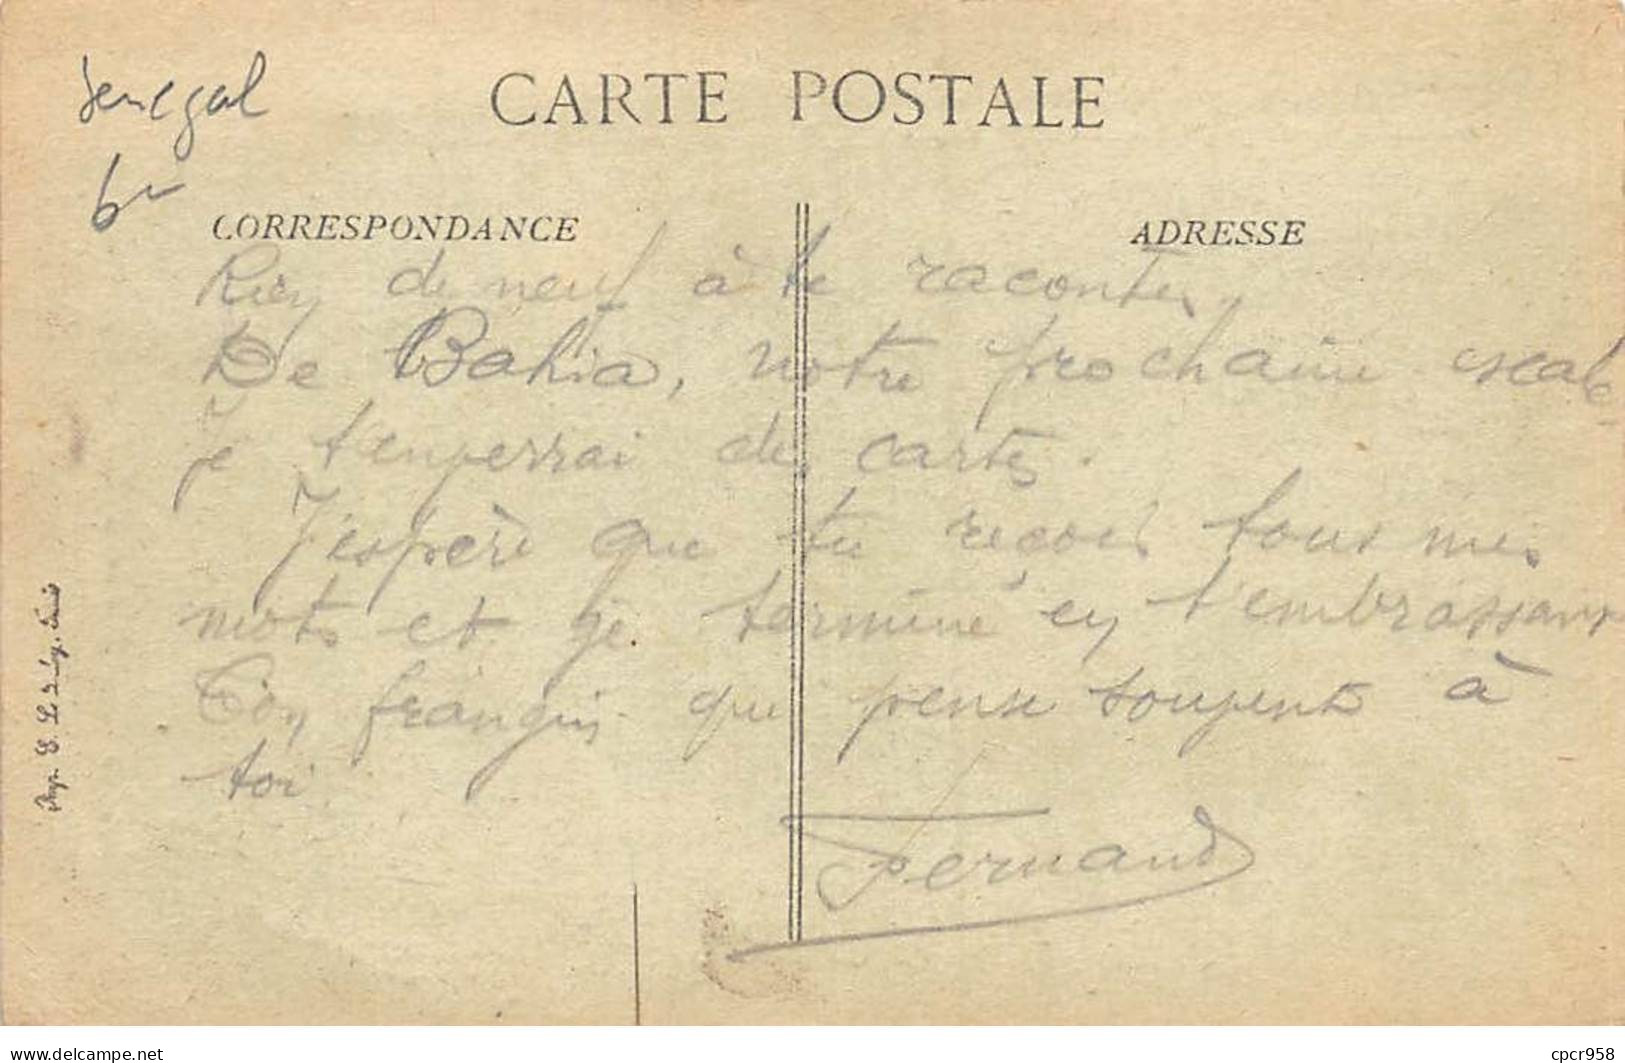 Senegal
CARTE POSTALE
6
CORRESPONDANCE
ADRESSE
Rien de neuf à te raconter,
De Bahia, notre prochaine escale
Je t'enverrai des cartes.
J'espère que tu reçois tous mes
mots et je termine en t'embrassant
Ton frangin qui pense souvent à
toi.
Fernand
Imp. E. L. Paris
www.delcampe.net
cpcr958